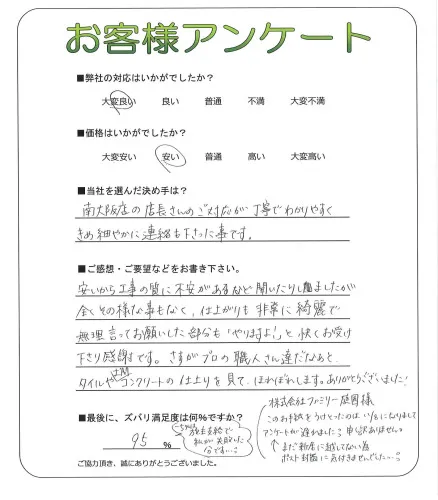 お客様アンケート
■弊社の対応はいかがでしたか?
大変良い 良い 普通 不満 大変不満
■価格はいかがでしたか?
大変安い 安い 普通 高い 大変高い
■当社を選んだ決め手は?
南大阪店の店長さんのご対応が丁寧でわかりやすく
きめ細やかに連絡も下さった事です。
■ご感想・ご要望などをお書き下さい。
安いから工事の質に不安があるなど聞いたりしましたが
全くその様な事もなく、仕上がりも非常に綺麗で
無理言ってお願いした部分も「やりますよ!」と快くお受け
下さり感謝です。さすがプロの職人さん達だなぁと
タイルやコンクリートの仕上りを見て、ほれぼれします。ありがとうございました!
■最後に、ズバリ満足度は何%ですか?
95 %
-5%は
施主支給で
私が失敗した
分です…
株式会社ファミリー庭園様
このお手紙をうけとったのは になりまして
アンケートが遅れました? 申し訳ありません。
↑まだ新居に越してない為
ポスト封筒に気付きませんでした…
ご協力頂き、誠にありがとうございました。